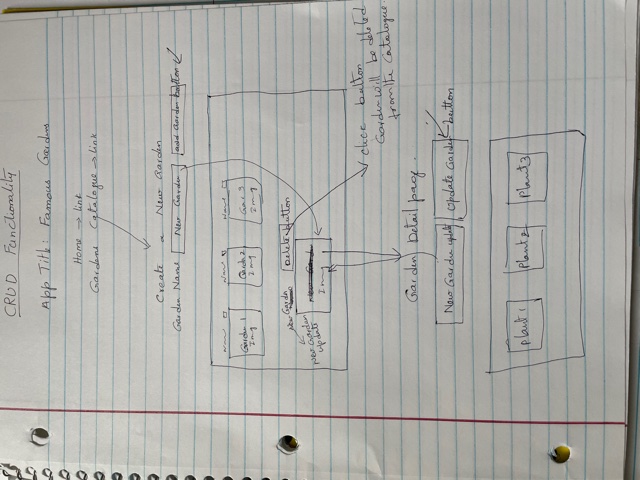 CRUD Functionality
App Title: Famous Gardens
Home → link
Gardens Catalogue → link
Create a New Garden
Garden Name New Garden add Garden button
Name Name Name
Garden 1 Img
Garden 2 Img
Gar 3 Img
New Garden Delete button
New Garden update
Img
click button
Garden will be deleted
from the Catalogue.
Garden Detail page.
New Garden update Update Garden button
Plant 1 Plant 2 Plant 3